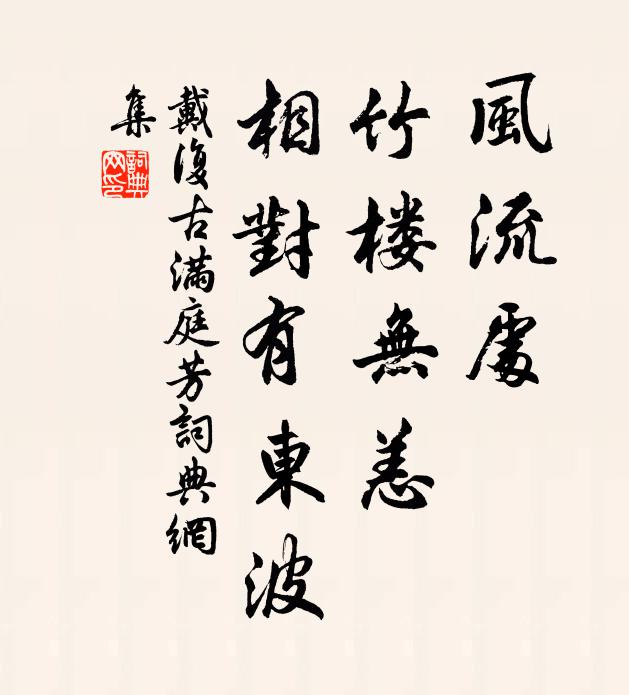 風流處
竹楼無恙
相對有東波
戴復古满庭芳詞典網
集
詞典網印